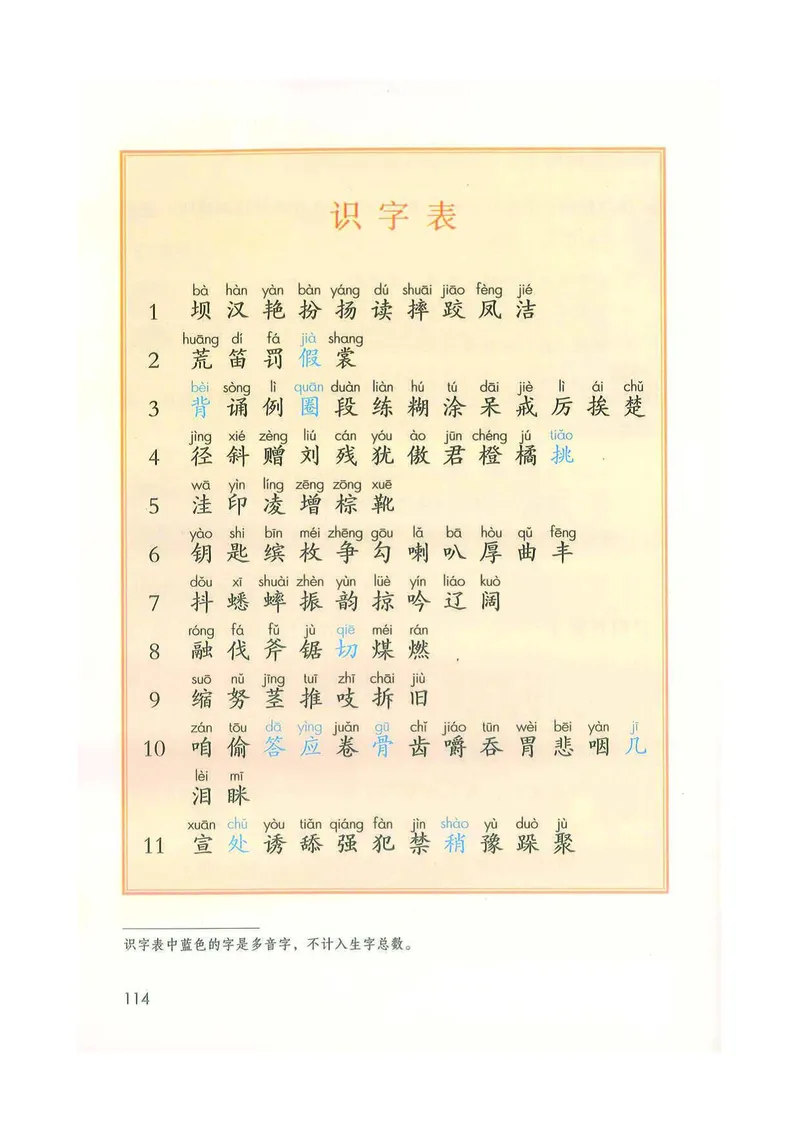 识字表
bà hàn yàn bàn yáng dú shuāi jiāo fèng jié
1 坝 汉 艳 扮 扬 读 摔 跤 凤 洁
huāng dí fá jià shang
2 荒 笛 罚 假 裳
bèi sòng lì quān duàn liàn hú tú dāi jiè lì ái chǔ
3 背 诵 例 圈 段 练 糊 涂 呆 戒 厉 挨 楚
jìng xié zèng liú cán yóu ào jūn chéng jú tiāo
4 径 斜 赠 刘 残 犹 傲 君 橙 橘 挑
wā yìn líng zēng zōng xuē
5 洼 印 凌 增 棕 靴
yào shi bīn méi zhēng gōu lǎ bā hòu qǔ fēng
6 钥 匙 缤 枚 争 勾 喇 叭 厚 曲 丰
dǒu xī shuài zhèn yùn lüè yín liáo kuò
7 抖 蟋 蟀 振 韵 掠 吟 辽 阔
róng fá fǔ jù qiē méi rán
8 融 伐 斧 锯 切 煤 燃
suō nǔ jīng tuī zhī chāi jiù
9 缩 努 茎 推 吱 拆 旧
zán tōu dā yìng juǎn gū chǐ jiáo tūn wèi bēi yàn jī
10 咱 偷 答 应 卷 骨 齿 嚼 吞 胃 悲 咽 几
lèi mī
泪 眯
xuān chǔ yòu tiǎn qiáng fàn jìn shào yù duò jù
11 宣 处 诱 舔 强 犯 禁 稍 豫 跺 聚
识字表中蓝色的字是多音字，不计入生字总数。
114